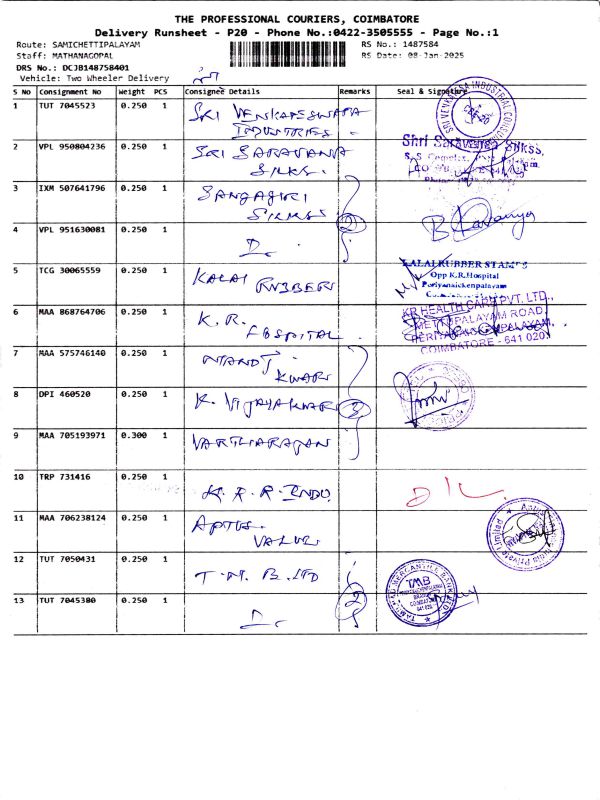 THE PROFESSIONAL COURIERS, COIMBATORE
Delivery Runsheet - P20 - Phone No.:0422-3505555 - Page No.:1
Route: SAMICHETTIPALAYAM
RS No.: 1487584
Staff: MATHANAGOPAL
RS Date: 08-Jan-2025
DRS No.: DCJB148758401
Vehicle: Two Wheeler Delivery
S No Consignment No Weight PCS Consignee Details Remarks Seal & Signature
1 TUT 7045523 0.250 1 SRI VENKATESWARA
INDUSTRIES
2 VPL 950804236 0.250 1 SRI SARAVANA
SILKS.
Shri Saravana Silkss,
3 IXM 507641796 0.250 1 SANGAGIRI
SILKSS
2
4 VPL 951630081 0.250 1 D.
5 TCG 30065559 0.250 1 KALAI RUBBER
KALAI RUBBER STAMPS
Opp K.R.Hospital
Periyanaickenpalayam
6 MAA 868764706 0.250 1 K.R.
HOSPITAL
KR HEALTH CARE PVT. LTD.,
METTUPALAYAM ROAD,
PERIYANAICKENPALAYAM,
COIMBATORE - 641 020
7 MAA 575746140 0.250 1 NANDJ
KWAR
8 DPI 460520 0.250 1 K. VIJAYAKWAR 3
9 MAA 705193971 0.300 1 VARTHARAJAN
10 TRP 731416 0.250 1 K.R.R. INDU.
D/L
11 MAA 706238124 0.250 1 APTUS
VALUE
12 TUT 7050431 0.250 1 T.M.B. LTD
TAMILNAD MERCANTILE BANK LTD
TMB
13 TUT 7045380 0.250 1 D.
2